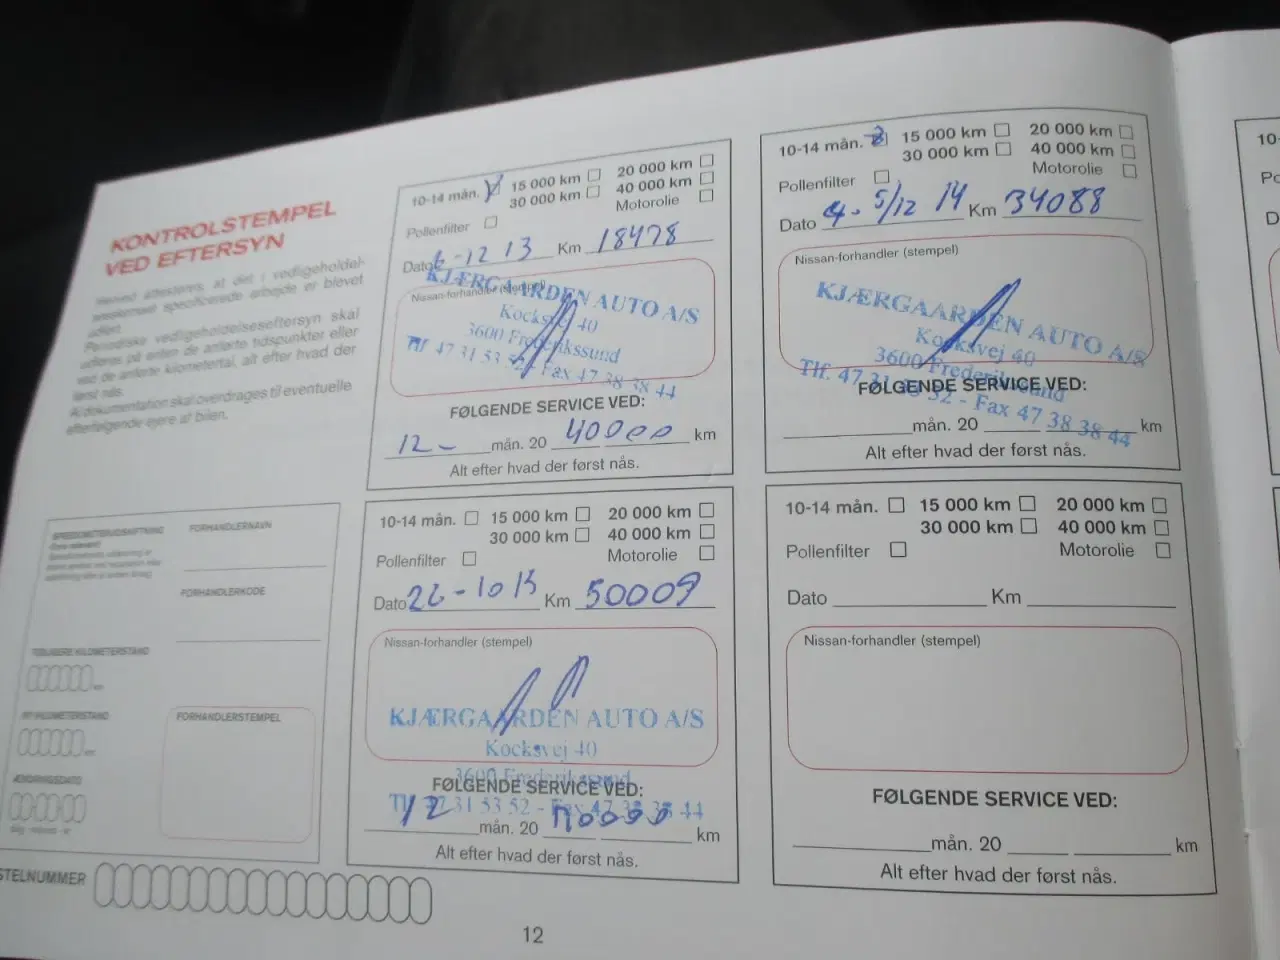 KONTROLSTEMPEL
VED EFTERSYN
Herved attesteres, at det i vedligeholdel-
sesskemaet specificerede arbejde er blevet
udført.
Periodiske vedligeholdelseseftersyn skal
udføres på enten de anførte tidspunkter eller
ved de anførte kilometertal, alt efter hvad der
først nås.
Al dokumentation skal overdrages til eventuelle
efterfølgende ejere af bilen.
FORHANDLERNAVN
FORHANDLERKODE
TIDLIGERE KILOMETERSTAND
NY KILOMETERSTAND
ÆNDRINGSDATO
FORHANDLERSTEMPEL
STELNUMMER
10-14 mån. 15 000 km 20 000 km
30 000 km 40 000 km
Pollenfilter Motorolie
Dato 6-12 13 Km 18478
Nissan-forhandler (stempel)
KJÆRGAARDEN AUTO A/S
Kocksvej 40
3600 Frederikssund
Tlf 47 31 53 52 - Fax 47 38 38 44
FØLGENDE SERVICE VED:
12 - mån. 20 40000 km
Alt efter hvad der først nås.
10-14 mån. 15 000 km 20 000 km
30 000 km 40 000 km
Pollenfilter Motorolie
Dato 5/12 14 Km 34088
Nissan-forhandler (stempel)
KJÆRGAARDEN AUTO A/S
Kocksvej 40
3600 Frederikssund
Tlf. 47 31 53 52 - Fax 47 38 38 44
FØLGENDE SERVICE VED:
mån. 20 km
Alt efter hvad der først nås.
10-14 mån. 15 000 km 20 000 km
30 000 km 40 000 km
Pollenfilter Motorolie
Dato 26-10 15 Km 50009
Nissan-forhandler (stempel)
KJÆRGAARDEN AUTO A/S
Kocksvej 40
3600 Frederikssund
Tlf 47 31 53 52 - Fax 47 38 38 44
FØLGENDE SERVICE VED:
12 mån. 20 km
Alt efter hvad der først nås.
10-14 mån. 15 000 km 20 000 km
30 000 km 40 000 km
Pollenfilter Motorolie
Dato Km
Nissan-forhandler (stempel)
FØLGENDE SERVICE VED:
mån. 20 km
Alt efter hvad der først nås.
12
10-